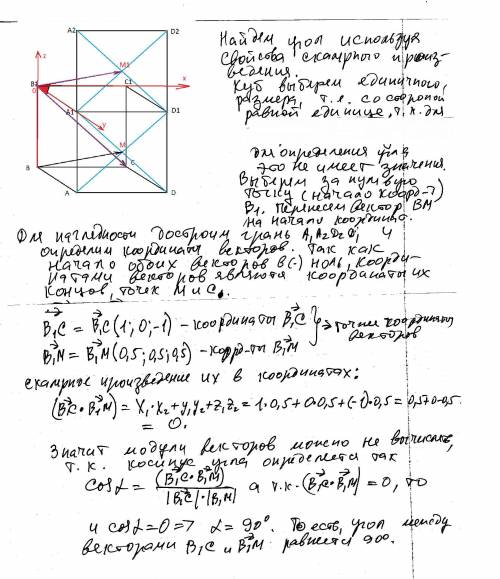 A2
D2
z
M1
B1
C1
x
O
A1
D1
y
M
B
C
A
D
Найдем угол используя
свойства скалярного произ-
ведения.
Куб выберем единичного
размера, т.е. со стороной
равной единице, т.к. для
для определения угла
это не имеет значения.
Выберем за нулевую
точку (начало коорд-т)
B₁. Перенесем вектор BM
на начало координат.
Для наглядности достроим грань A₁A₂D₂D₁ и
определим координаты векторов. Так как
начало обоих векторов в (·) ноль, коорди-
натами векторов являются координаты их
концов, точек M и C.
B₁C = B₁C (1; 0; -1) - координаты B₁C
B₁M = B₁M (0,5; 0,5; 0,5) - коорд-ты B₁M
координаты
векторов
скалярное произведение их в координатах:
(B₁C · B₁M) = X₁·X₂+y₁y₂+z₁z₂ = 1·0,5+0·0,5+(-1)·0,5 = 0,5+0-0,5
= 0.
Значит модули векторов можно не вычислять,
т.к. косинус угла определяется так
cos α = (B₁C · B₁M) / |B₁C|·|B₁M| а т.к. (B₁C · B₁M) = 0, то
и cos α = 0 => α = 90°. То есть, угол между
векторами B₁C и B₁M равняется 90°.